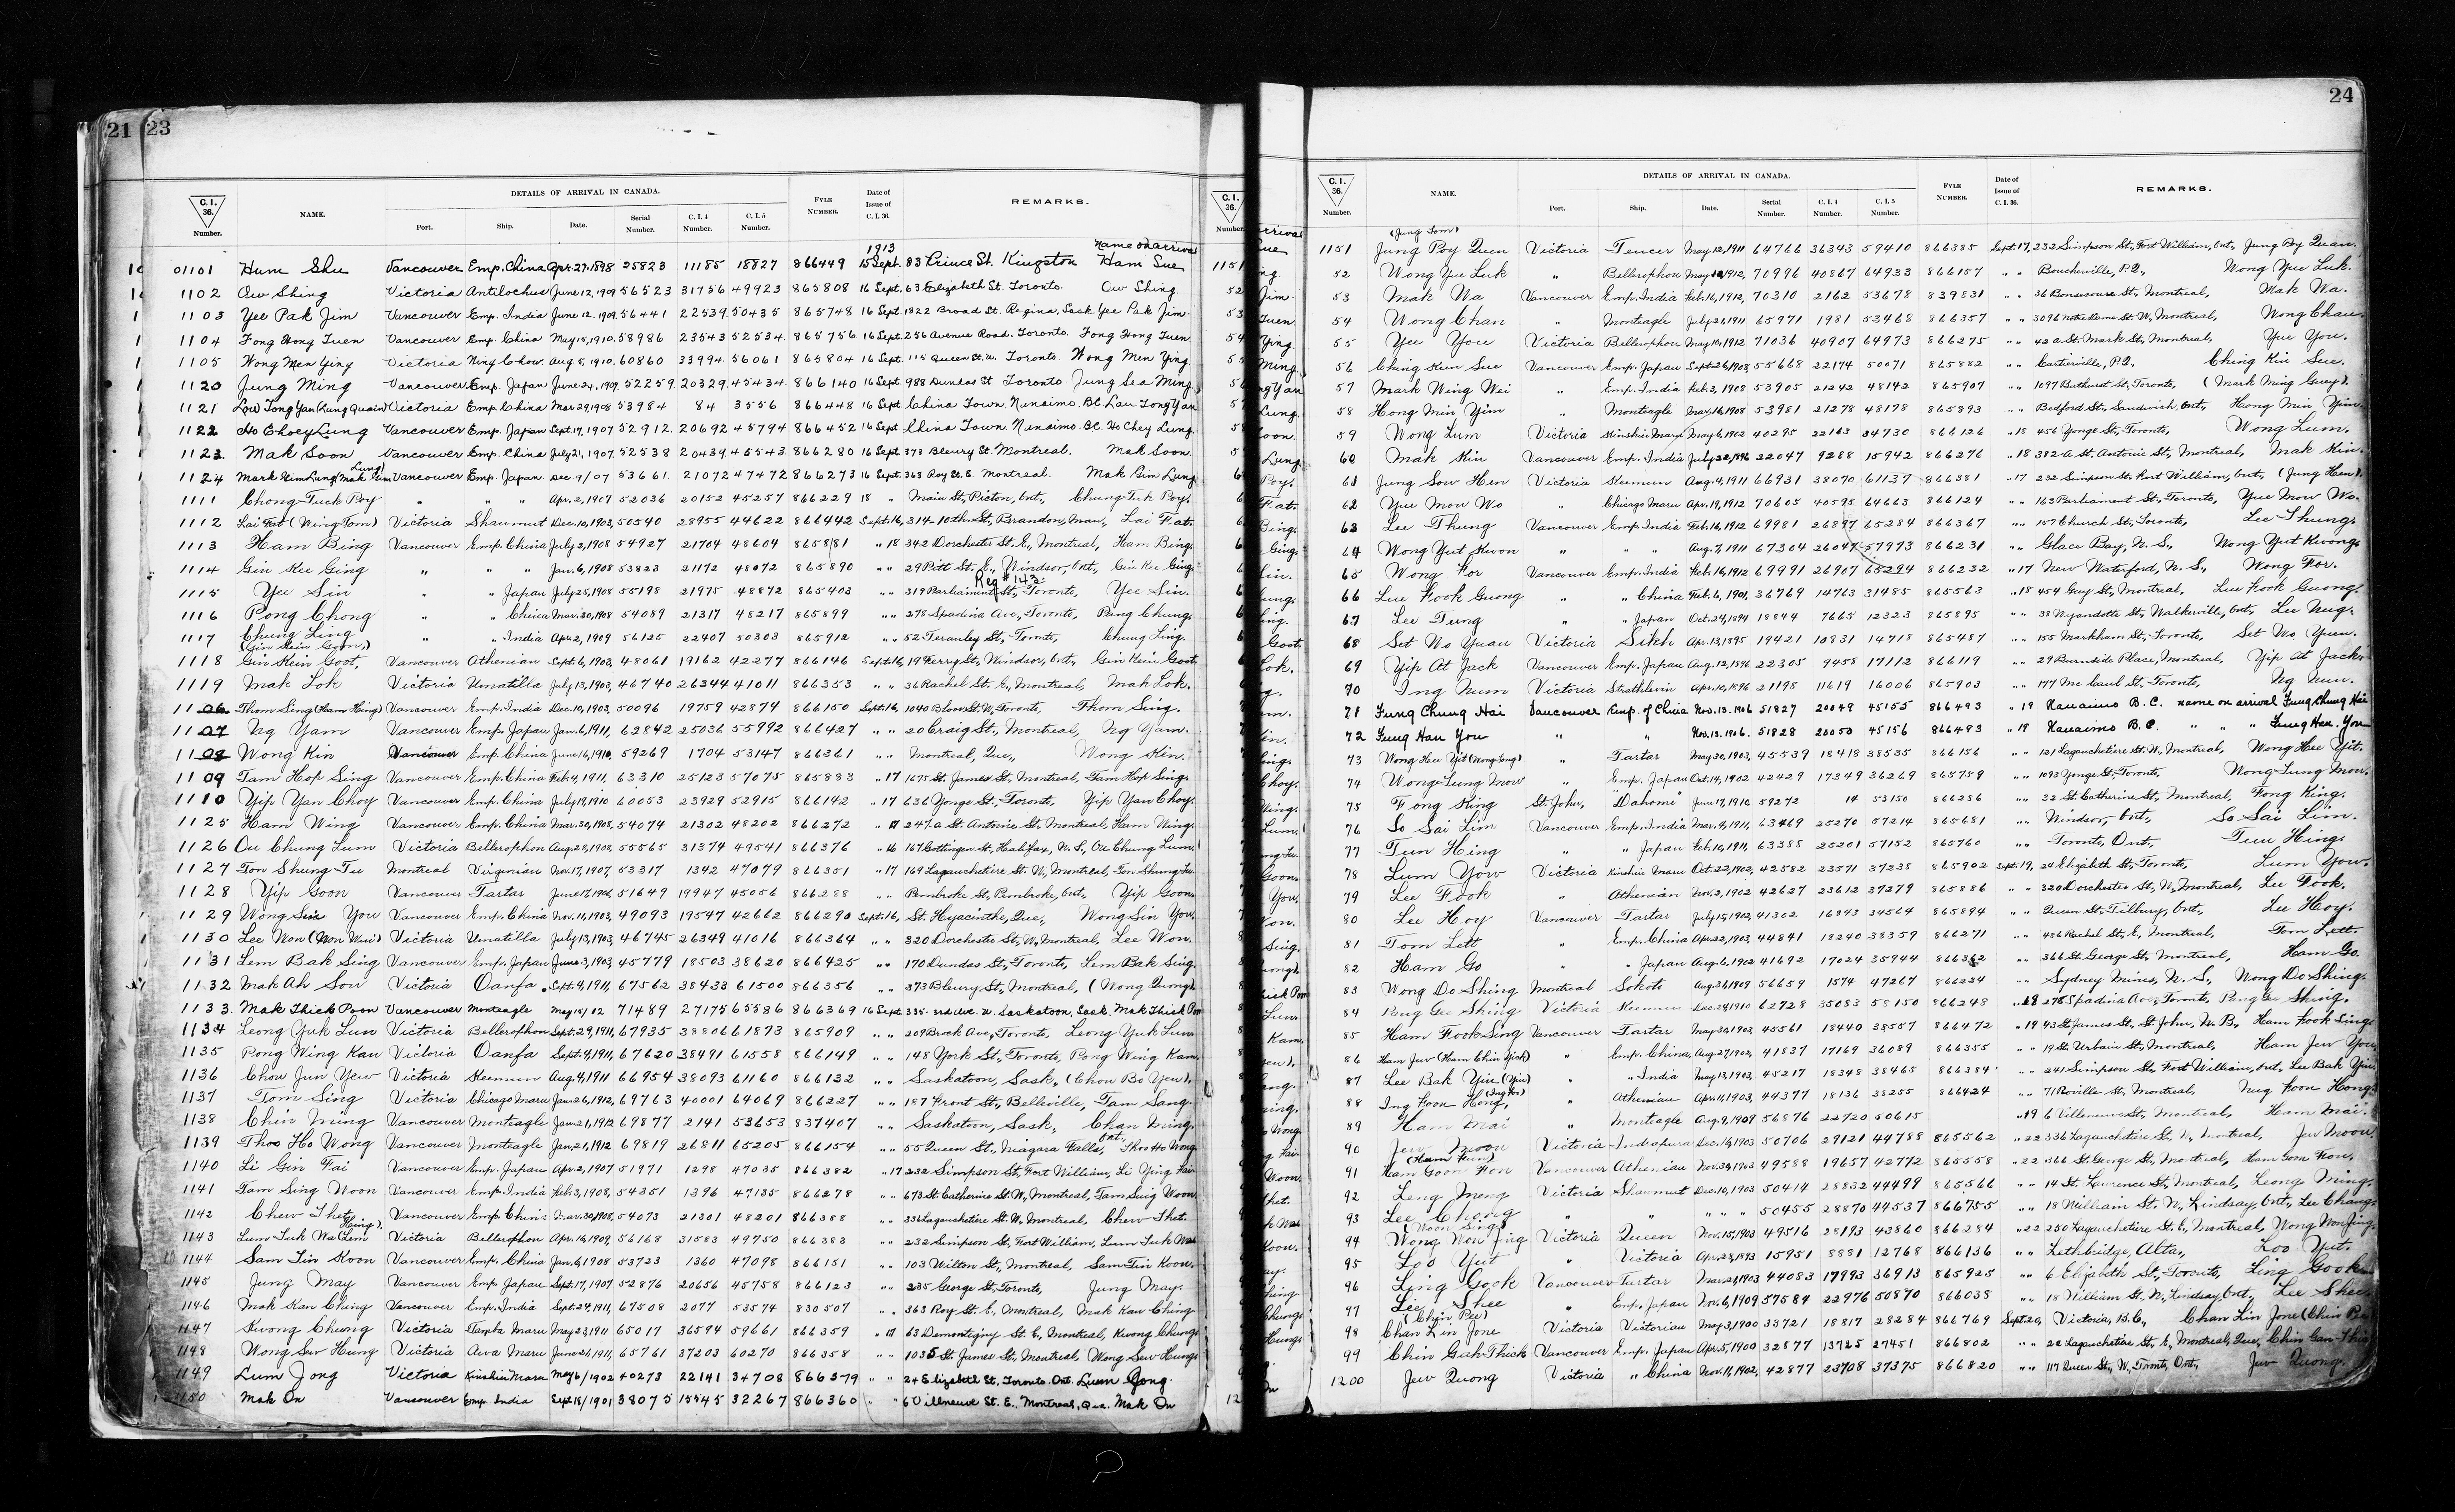 21 23
C.I. 36. Number. NAME. DETAILS OF ARRIVAL IN CANADA. Port. Ship. Date. Serial Number. C.I.4 Number. C.I.5 Number. FYLE NUMBER. Date of Issue of C.I.36. REMARKS.
1913 Name on arrival
01101 Hum Shu Vancouver Emp. China Apr. 27. 1898 25823 11185 18827 866449 15 Sept. 83 Prince St. Kingston Ham Sue
1102 Ow Shing Victoria Antilochus June 12, 1909 56523 31756 49923 865808 16 Sept. 63 Elizabeth St. Toronto. Ow Shing.
1103 Yee Pak Jim Vancouver Emp. India June 12, 1909. 56441 22539 50435 865748 16 Sept. 1822 Broad St. Regina, Sask Yee Pak Jim.
1104 Fong Hong Tuen Vancouver Emp. China May 15, 1910. 58986 23543 52534. 865756 16 Sept. 256 Avenue Road. Toronto. Fong Hong Tuen
1105 Wong Men Ying Victoria Ning Chow. Aug 5, 1910. 60860 33994 56061 865804 16 Sept. 115 Queen St. W. Toronto. Wong Men Ying
1120 Jung Ming Vancouver Emp. Japan June 24, 1907. 52259. 20329. 45434. 866140 16 Sept. 988 Dundas St. Toronto. Jung Sea Ming
1121 Low Tong Yan (Lung Quain) Victoria Emp. China Mar 29, 1908 53984 84 3556 866448 16 Sept China Town. Nanaimo. B.C. Lau Tong Yan
1122 Ho Choey Lung Vancouver Emp. Japan Sept. 17, 1907 52912. 20692 45794 866452 16 Sept China Town. Nanaimo. B.C. Ho Chey Lung.
1123. Mak Soon Vancouver Emp. China July 21, 1907. 52538 20439 45543. 866280 16 Sept 373 Bleury St. Montreal. Mak Soon.
1124 Mark Kim Lung (Mak Gim Lung) Vancouver Emp. Japan Dec. 9/07 53661. 21072 47472 866273 16 Sept. 363 Roy St. E. Montreal. Mak Gim Lung.
1111 Chong Tuck Poy " " " Apr. 2, 1907 52036 20152 45257 866229 18 " Main St., Picton, Ont., Chung Tuk Poy.
1112 Lai Fat (Ming Tom) Victoria Shawmut Dec. 10, 1903, 50540 28955 44622 866442 Sept. 16, 314-10th St., Brandon, Man., Lai Fat.
1113 Ham Bing Vancouver Emp. China July 2, 1908 54927 21704 48604 865881 " 18 342 Dorchester St. E., Montreal, Ham Bing.
1114 Gin Kee Ging " " " Jan. 6, 1908 53823 21172 48072 865890 " " 29 Pitt St. E., Windsor, Ont., Gin Kee Ging.
Reg # 143
1115 Yee Sin " " Japan July 25, 1908 55198 21975 48872 865403 " " 319 Parliament St., Toronto, Yee Sin.
1116 Pong Chong " " China Mar. 30, 1908 54089 21317 48217 865899 " " 278 Spadina Ave., Toronto, Pang Chung.
1117 Chung Ling " " India Apr. 2, 1909 56125 22407 50303 865912 " " 52 Terauley St., Toronto, Chung Ling.
(Gin Kein Goon,)
1118 Gin Kein Goot, Vancouver Athenian Sept. 6, 1903, 48061 19162 42277 866146 Sept. 16, 19 Ferry St., Windsor, Ont., Gin Kein Goot
1119 Mak Lok Victoria Umatilla July 13, 1903, 46740 26344 41011 866353 " " 36 Rachel St. E., Montreal, Mak Lok.
1106 Thom Sing (Ham Hing) Vancouver Emp. India Dec. 10, 1903, 50096 19759 42874 866150 Sept. 16, 1040 Bloor St. W., Toronto, Thom Sing.
1107 Ng Yam Vancouver Emp. Japan Jan. 6, 1911, 62842 25036 55992 866427 " " 20 Craig St., Montreal, Ng Yam.
1108 Wong Kin Vancouver Emp. China June 16, 1910, 59269 1704 53147 866361 " " Montreal, Que., Wong Kin.
1109 Tam Hop Sing Vancouver Emp. China Feb. 4, 1911, 63310 25123 57075 865883 " 17 1675 St. James St., Montreal, Tam Hop Sing.
1110 Yip Yan Choy Vancouver Emp. China July 19, 1910 60053 23929 52915 866142 " 17 636 Yonge St., Toronto, Yip Yan Choy.
1125 Ham Wing Vancouver Emp. China Mar. 30, 1908, 54074 21302 48202 866272 " 17 247a St. Antoine St., Montreal, Ham Wing.
1126 Ou Chung Lum Victoria Bellerophon Aug. 28, 1908, 55565 31374 49541 866376 " 16 167 Gottingen St., Halifax, N.S., Ou Chung Lum.
1127 Ton Shung Tu Montreal Virginian Nov. 17, 1907, 53317 1342 47079 866351 " 17 169 Lagauchetiere St. W., Montreal, Ton Shung Tu.
1128 Yip Goon Vancouver Tartar June 17, 1906, 51649 19947 45056 866288 " " Pembroke St., Pembroke, Ont., Yip Goon.
1129 Wong Sin You Vancouver Emp. China Nov. 11, 1903, 49093 19547 42662 866290 Sept. 16, St. Hyacinthe, Que., Wong Sin You.
1130 Lee Won (Mon Wai) Victoria Umatilla July 13, 1903, 46745 26349 41016 866364 " " 320 Dorchester St., W., Montreal, Lee Won.
1131 Lem Bak Sing Vancouver Emp. Japan June 3, 1903, 45779 18503 38620 866425 " " 170 Dundas St., Toronto, Lem Bak Sing.
1132 Mak Ah Sou Victoria Oanfa Sept. 9, 1911, 67562 38433 61500 866356 " " 373 Bleury St., Montreal, (Wong Quong)
1133. Mak Thick Poon Vancouver Monteagle May 18/12 71489 27175 65586 866369 16 Sept. 335-3rd Ave. N. Saskatoon, Sask. Mak Thick Poon
1134 Leong Yuk Lun Victoria Bellerophon Sept. 29, 1911, 67935 38806 61873 865909 " " 209 Brock Ave., Toronto, Leong Yuk Lun.
1135 Pong Wing Kau Victoria Oanfa Sept. 9, 1911, 67620 38491 61558 866149 " " 148 York St., Toronto, Pong Wing Kam.
1136 Chou Jun Yew Victoria Keemun Aug. 4, 1911 66954 38093 61160 866132 " " Saskatoon, Sask., (Chou Bo Yen).
1137 Tom Sing Victoria Chicago Maru Jan. 26, 1912, 69763 40001 64069 866227 " " 187 Front St., Belleville, Tam Sang.
1138 Chin Ming Vancouver Monteagle Jan. 21, 1912 69877 2141 53653 837407 " " Saskatoon, Sask., Chan Ming.
1139 Thoo Ho Wong Vancouver Monteagle Jan. 21, 1912 69819 26811 65205 866154 " " 55 Queen St., Niagara Falls, Ont., Thoo Ho Wong
1140 Li Gin Fai Vancouver Emp. Japan Apr. 2, 1907 51971 1298 47035 866382 " 17 232 Simpson St., Fort William, Li Ying Fai.
1141 Tam Sing Woon Vancouver Emp. India Feb. 3, 1908, 54351 1396 47135 866278 " " 673 St. Catherine St. W., Montreal, Tam Suig Woon.
1142 Chew Thet Vancouver Emp. China Mar. 30, 1908, 54073 21301 48201 866388 " " 336 Lagauchetiere St. W., Montreal, Chew Thet.
1143 Lum Tuk Wa (Lem Hing). Victoria Bellerophon Apr. 14, 1909, 56168 31583 49750 866383 " " 232 Simpson St., Fort William, Lum Tuk Wah
1144 Sam Tin Koon Vancouver Emp. China Jan. 6, 1908 53723 1360 47098 866151 " " 103 Milton St., Montreal, Sam Tin Koon.
1145 Jung May Vancouver Emp. Japan Sept. 17, 1907 52876 20656 45758 866123 " " 235 George St., Toronto, Jung May.
1146 Mak Kan Ching Vancouver Emp. India Sept. 24, 1911, 67508 2077 53574 830507 " " 363 Roy St. E., Montreal, Mak Kau Ching
1147 Kwong Chung Victoria Tamba Maru May 23, 1911 65017 36594 59661 866359 " 17 63 Demontigny St. E., Montreal, Kwong Chung.
1148 Wong Sew Hung Victoria Awa Maru June 21, 1911, 65761 37203 60270 866358 " " 1035 St. James St., Montreal, Wong Sew Hung.
1149 Lum Jong Victoria Kinshiu Maru May 6/1902 40273 22141 34708 866379 " " 24 Elizabeth St., Toronto. Ont. Lum Jong.
1150 Mak On Vancouver Emp. India Sept. 18/1901 38075 15545 32267 866360 " " 6 Villneuve St. E., Montreal, Que. Mak On
24
C.I. 36. Number. NAME. DETAILS OF ARRIVAL IN CANADA. Port. Ship. Date. Serial Number. C.I.4 Number. C.I.5 Number. FYLE NUMBER. Date of Issue of C.I.36. REMARKS.
(Jung Tom)
1151 Jung Poy Quen Victoria Teucer May 12, 1911 64766 36343 59410 866385 Sept. 17, 232 Simpson St., Fort William, Ont., Jung Poy Quan.
52 Wong Yue Luk " Bellerophon May 1912, 70996 40867 64933 866157 " " Boucherville, P.Q., Wong Yue Luk.
53 Mak Wa Vancouver Emp. India Feb. 16, 1912, 70310 2162 53678 839831 " " 36 Bonsecours St., Montreal, Mak Wa.
54 Wong Chan " Monteagle July 21, 1911 65971 1981 53468 866357 " " 3096 Notre Dame St. W., Montreal, Wong Chau.
55 Yee You Victoria Bellerophon May 10, 1912 71036 40907 64973 866275 " " 42a St. Mark St., Montreal, Yue You.
56 Ching Ken Sue Vancouver Emp. Japan Sept. 26, 1908, 55668 22174 50071 865882 " " Cartierville, P.Q., Ching Kin Sue.
57 Mark Wing Wei " Emp. India Feb. 3, 1908 53905 21242 48142 865907 " " 1097 Bathurst St., Toronto, (Mark Ming Guey).
58 Hong Min Yim " Monteagle Mar. 16, 1908 53981 21278 48178 865893 " " Bedford St., Sandwich, Ont., Hong Min Yim.
59 Wong Lum Victoria Kinshiu Maru May 6, 1902 40295 22163 34730 866126 " 18 456 Yonge St., Toronto, Wong Lum.
60 Mak Kin Vancouver Emp. India July 22, 1896 22047 9288 15942 866276 " 18 312a St. Antoine St., Montreal, Mak Kin.
61 Jung Sow Hen Victoria Keemun Aug. 4, 1911 66931 38070 61137 866381 " 17 232 Simpson St. Fort William, Ont., (Jung Hen).
62 Yue Mow Wo " Chicago Maru Apr. 19, 1912 70605 40595 64663 866124 " " 163 Parliament St., Toronto, Yue Mow Wo.
63 Lee Thung Vancouver Emp. India Feb. 16, 1912 69981 26897 65284 866367 " " 157 Church St., Toronto, Lee Thung.
64 Wong Yut Kwon " " " Aug. 7, 1911 67304 26047 57973 866231 " " Glace Bay, N.S., Wong Yut Kwong.
65 Wong For Vancouver Emp. India Feb. 16, 1912 69991 26907 65294 866232 " 17 New Waterford, N.S., Wong For.
66 Luu Fook Guong " " China Feb. 6, 1901, 36769 14763 31485 865563 " 18 454 Guy St., Montreal, Luu Fook Guong.
67 Lee Tung " " Japan Oct. 24, 1894 18844 7665 12323 865895 " " 38 Wyandotte St., Walkerville, Ont., Lee Nug.
68 Set Wo Yuan Victoria Sikh Apr. 13, 1895 19421 10831 14718 865487 " " 155 Markham St., Toronto, Set Wo Yuen.
69 Yip At Jack Vancouver Emp. Japan Aug. 12, 1896 22305 9458 17112 866119 " " 29 Burnside Place, Montreal, Yip At Jack.
70 Ing Num Victoria Strathlevin Apr. 10, 1896 21198 11619 16006 865903 " " 177 Mc Caul St., Toronto, Ng Nun.
71 Fung Chung Hai Vancouver Emp. of China Nov. 13. 1906 51827 20049 45155 866493 " 19 Nanaimo B.C. name on arrival Fung Chung Hai
72 Fung Hau You " " Nov. 13. 1906. 51828 20050 45156 866493 " 19 Nanaimo B.C. " " Fung Hau You
73 Wong Hee Yit (Wong Song) " Tartar May 30, 1903, 45539 18418 38535 866156 " " 121 Lagauchetiere St. W., Montreal, Wong Hee Yit.
74 Wong Lung Mow " Emp. Japan Oct. 14, 1902 42429 17349 36269 865759 " " 1093 Yonge St., Toronto, Wong Lung Mow.
75 Fong King St. John, "Dahome" June 17, 1910 59272 14 53150 866286 " " 32 St. Catherine St., Montreal, Fong King.
76 So Sai Lim Vancouver Emp. India Mar. 9, 1911, 63469 25270 57214 865681 " " Windsor, Ont., So Sai Lim.
77 Tun Hing " " Japan Feb. 10, 1911, 63388 25201 57152 865760 " " Toronto, Ont., Tuu Hing.
78 Lum Yow Victoria Kinshiu Maru Oct. 22, 1902, 42582 23571 37235 865902 Sept. 19, 24 Elizabeth St., Toronto, Lum Yow.
79 Lee Fook " Athenian Nov. 2, 1902 42627 23612 37279 865886 " " 320 Dorchester St., W., Montreal, Lee Fook.
80 Lee Hoy Vancouver Tartar July 15, 1902, 41302 16843 34564 865894 " " Queen St., Tilbury, Ont., Lee Hoy.
81 Tom Lett " Emp. China Apr. 22, 1903, 44841 18240 38359 866271 " " 486 Rachel St., E., Montreal, Tom Lett.
82 Ham Go " " Japan Aug. 6, 1902 41692 17024 35944 866362 " " 366 St. George St., Montreal, Ham Go.
83 Wong Do Shing Montreal Sokoto Aug. 31, 1909 56659 1574 47267 866234 " " Sydney Mines, N.S., Wong Do Shing.
84 Pang Gee Shing Victoria Keemun Dec. 24, 1910 62728 35083 58150 866248 " 18 278 Spadina Ave., Toronto, Pang Gee Shing.
85 Ham Fook Sing Vancouver Tartar May 30, 1903, 45561 18440 38557 866472 " 19 43 St. James St., St. John, N.B., Ham Fook Sing.
86 Ham Jew (Ham Chin Yick) " Emp. China, Aug. 27, 1902, 41837 17169 36089 866355 " " 19 St. Urbain St., Montreal, Ham Jew You.
87 Lee Bak Yin (Yiu) " " India May 13, 1903, 45217 18348 38465 866384 " " 241 Simpson St., Fort William, Ont., Lee Bak Yiu.
88 Ing Foon Hong, (Ing Foo) " Athenian Apr. 11, 1903, 44377 18136 38255 866424 " " 71 Roville St., Montreal, Nug Foon Hong.
89 Ham Mai " Monteagle Aug. 9, 1909 56876 22720 50615 " 19 6 Villeneuve St., Montreal, Ham Mai.
90 Jew Moon Victoria Indrapura Dec. 16, 1903 50706 29121 44788 865562 " 22 336 Lagauchetiere St., W., Montreal, Jew Moon.
(Ham Kun)
91 Ham Goon Fon Vancouver Athenian Nov. 30, 1903 49588 19657 42772 865558 " 22 366 St. George St., Montreal, Ham Goon Fon.
92 Leng Meng Victoria Shawmut Dec. 10, 1903 50414 28832 44499 865566 " " 14 St. Lawrence St., Montreal, Leong Ming.
93 Lee Chong " " " " " 50455 28870 44537 866755 " " 18 William St. N., Lindsay, Ont., Lee Chong.
(Woon Sing)
94 Wong Won Jing Victoria Queen Nov. 15, 1903 49516 28193 43860 866284 " 22 250 Lagauchetiere St. E., Montreal, Wong Won Jing.
95 Loo Yut " Victoria Apr. 23, 1893 15951 8881 12768 866136 " " Lethbridge, Alta., Loo Yut.
96 Ling Gook Vancouver Tartar Mar. 21, 1903 44083 17993 36913 865925 " " 6 Elizabeth St., Toronto, Ling Gook.
97 Lee Shee " Emp. Japan Nov. 6, 1909 57584 22976 50870 866038 " " 18 William St. N., Lindsay, Ont., Lee Shee.
(Chin Pee)
98 Chan Lin Jone Victoria Victorian May 3, 1900 33721 18817 28284 866769 Sept. 20, Victoria, B.C., Chan Lin Jone (Chin Pee)
99 Chin Gah Thick Vancouver Emp. Japan Apr. 5, 1900 32877 13725 27451 866802 " " 22 Lagauchetiere St., E., Montreal, Que., Chin Gah Thick
1200 Jew Quong Victoria " China Nov. 11, 1902, 42877 23708 37375 866820 " " 117 Queen St., W., Toronto, Ont., Jew Quong.